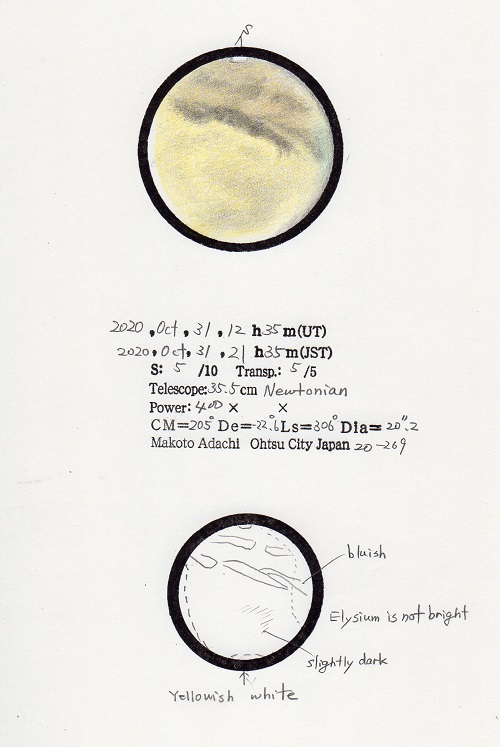 S
2020, Oct, 31, 12 h 35 m(UT)
2020, Oct, 31, 21 h 35 m(JST)
S: 5 /10 Transp.: 5 /5
Telescope: 35.5 cm Newtonian
Power: 400 × ×
CM=205° De=-22.6 Ls=306° Dia= 20".2
Makoto Adachi Ohtsu City Japan 20-269
bluish
Elysium is not bright
slightly dark
Yellowish white